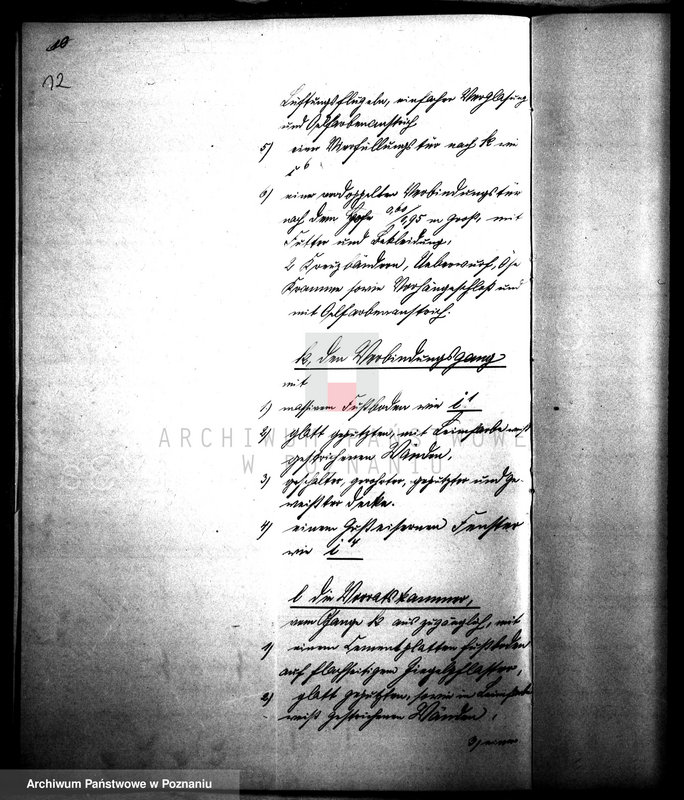 10
12
Lüftungsflügeln, einfacher Verglasung
und Oelfarbenanstrich
5) einer Verfüllungstür nach k wie
6
6) einer verdoppelten Verbindungstür
nach dem Hofe 0,80/1,95 m groß, mit
Futter und Bekleidung,
2 Kreuzbändern, Ueberwurf, Öse
Kramme sowie Vorhängeschloß und
mit Oelfarbenanstrich.
k, den Verbindungsgang
mit
1) massivem Fußboden wie i 1
2) glatt geputzten, mit Leimfarbe
gestrichenen Wänden,
3) geschalter, gerohrter, geputzter und ge-
weißter Decke.
4) einem Gußeisernen Fenster
wie i 4
l die Vorratskammer,
vom Gange k aus zugänglich, mit
1) einem Cementplatten fußboden
auf flachseitigem Ziegelpflaster,
2) glatt geputzten, sowie in Leimfarbe
weiß gestrichenen Wänden,
3, einer
ARCHIWUM PAŃSTWOWE
W POZNANIU
Archiwum Państwowe w Poznaniu